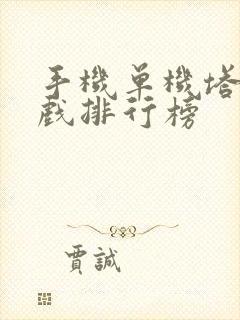 手機單機塔
戲排行榜
賈誠